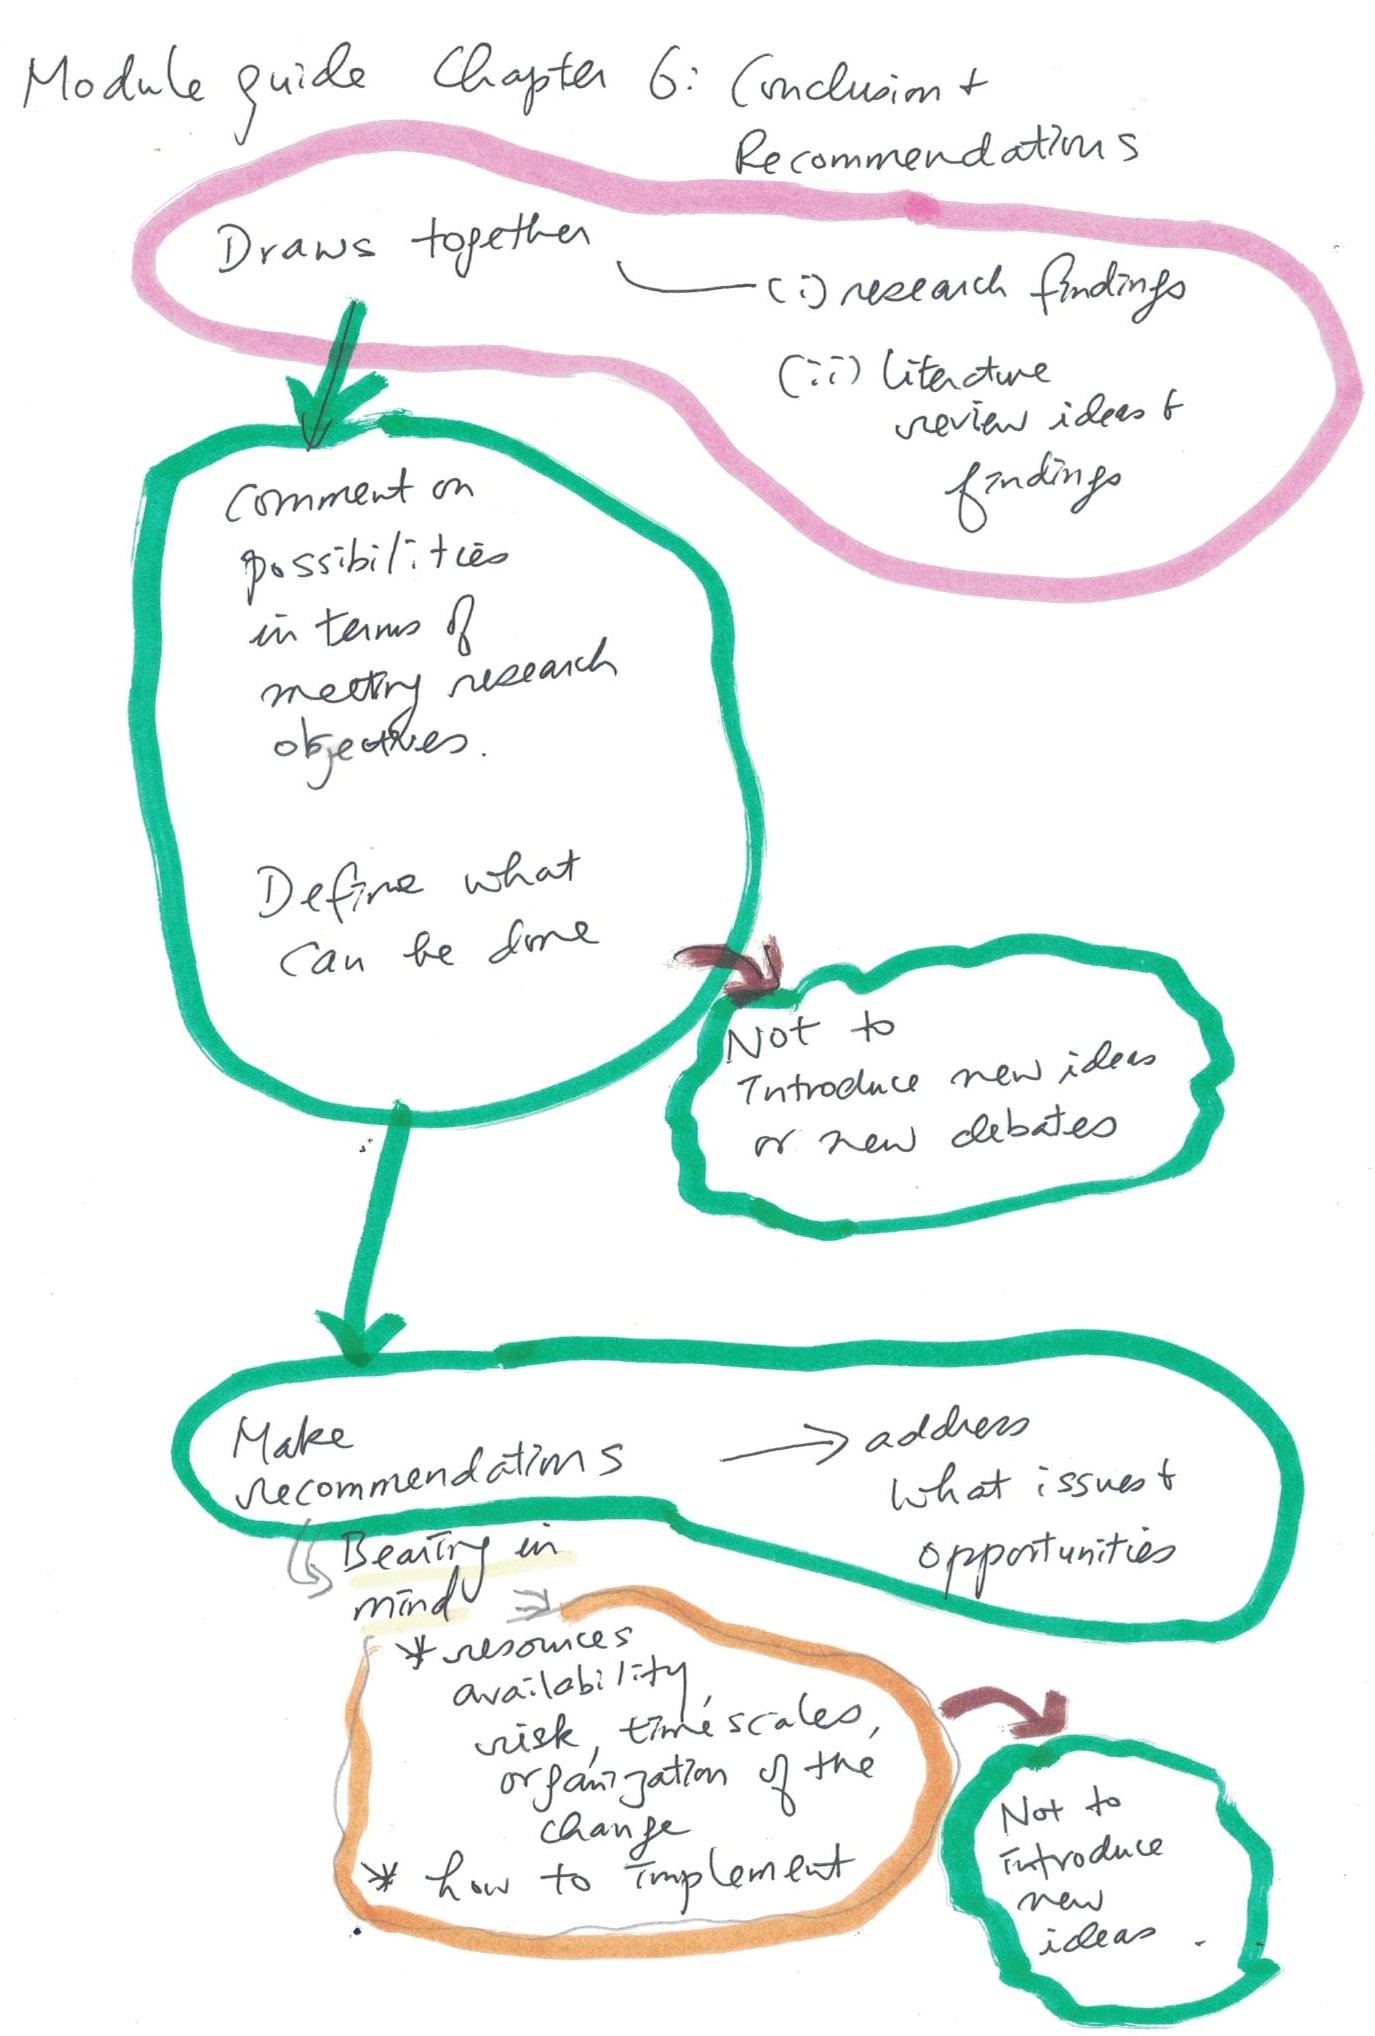 Module guide Chapter 6: Conclusion +
Recommendations
Draws together
(i) research findings
(ii) literature
review ideas +
findings
Comment on
possibilities
in terms of
meeting research
objectives.
Define what
can be done
Not to
Introduce new ideas
or new debates
Make
recommendations
address
what issues +
opportunities
Bearing in
mind
* resources
availability,
risk, time scales,
organization of the
change
* how to implement
Not to
introduce
new
ideas.